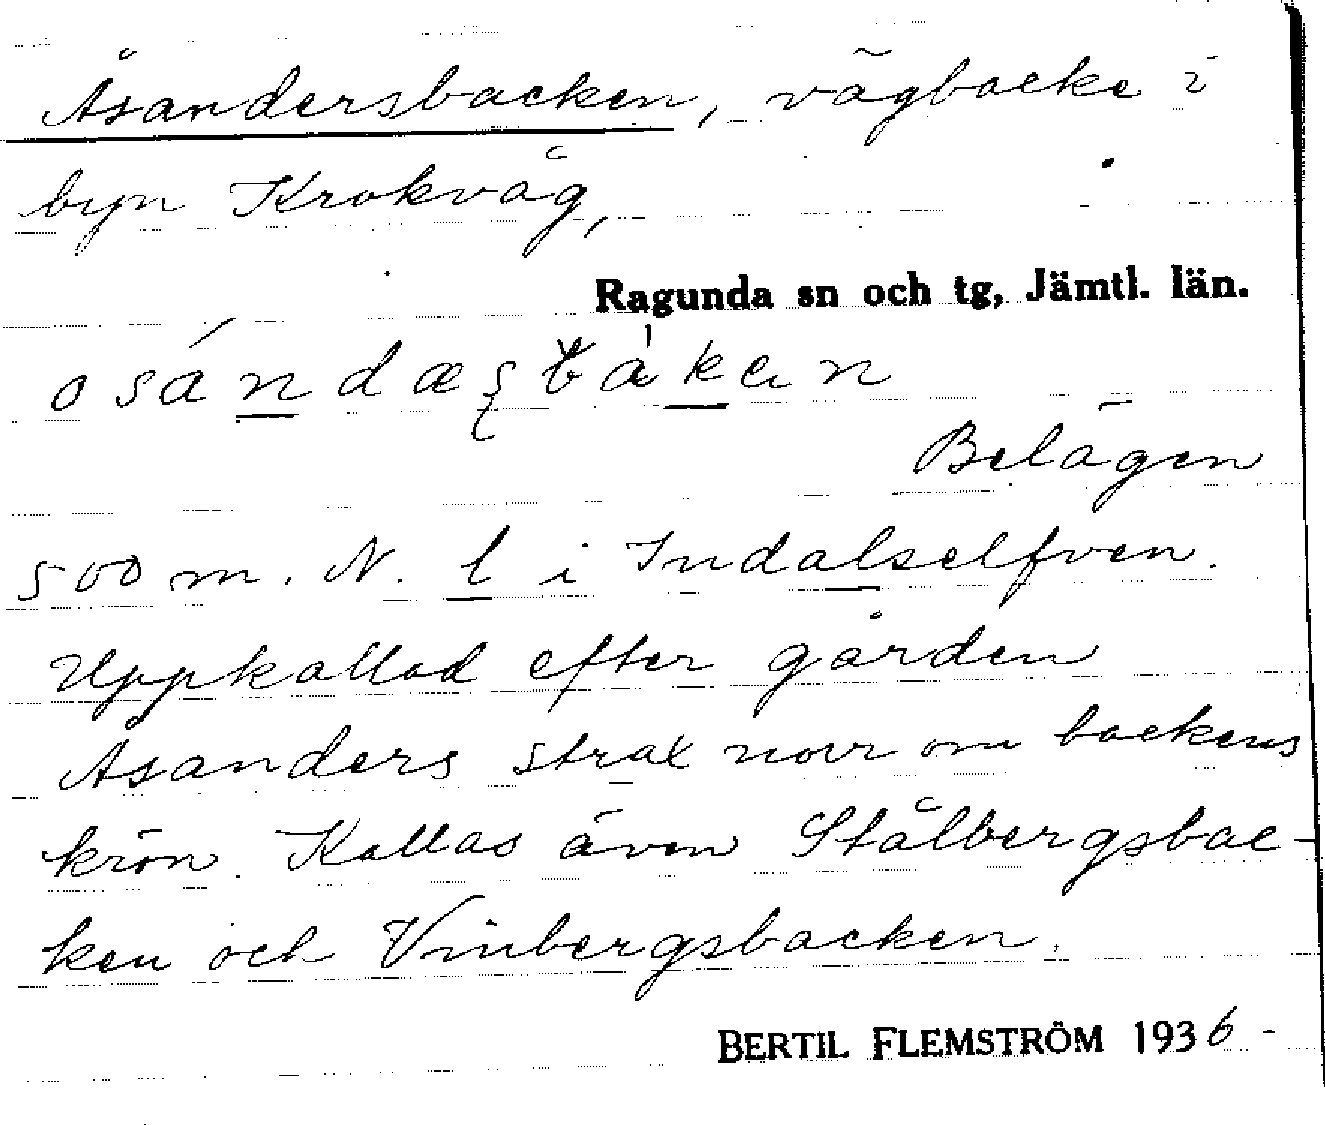 Åsandersbacken, vägbacke i
byn Krokvåg,
Ragunda sn och tg, Jämtl. län.
Belägen
500 m. N. l i Indalselfven.
Uppkallad efter gården
Åsanders strax norr om backens
krön. Kallas även Stålbergsbac-
ken och Vinbergsbacken.
BERTIL FLEMSTRÖM 1936 -